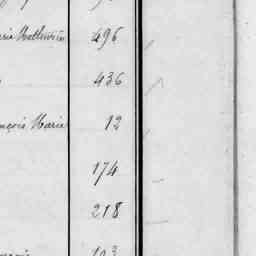 rie Mathurin 496
436
nçois Marie 12
174
218
193